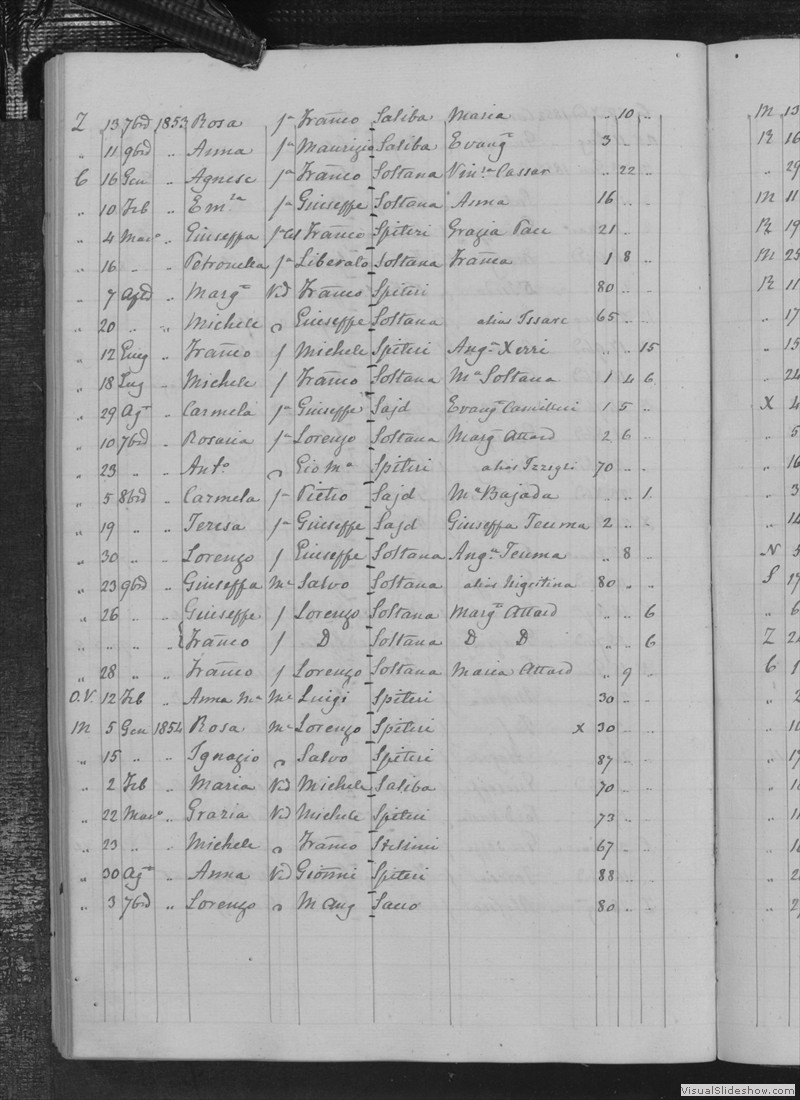 Z 13 7bre 1853 Rosa fa Franco Saliba Maria .. 10 ..
.. 11 9bre .. Anna fa Maurizio Saliba Evanga 3 .. ..
C 16 Gen .. Agnese fa Franco Soltana Vinza Cassar .. 22 ..
.. 10 Feb .. Emla fa Giuseppe Soltana Anna 16 .. ..
.. 4 Maro .. Giuseppa fa Franco Spiteri Grazia Pace 21 .. ..
.. 16 .. .. Petronella fa Liberato Soltana Franca 1 8 ..
.. 7 .. Marga Vd Franco Spiteri 80 .. ..
.. 20 .. .. Michele Giuseppe Soltana alias 65 .. ..
.. 12 Giug .. Franco f Michele Spiteri Anga Xerri .. .. 15
.. 18 Lug .. Michele f Franco Soltana Ma Soltana 1 4 6
.. 29 Ago .. Carmela fa Giuseppe Sajd Evanga Camilleri 1 5 ..
.. 10 7bre .. Rosaria fa Lorenzo Soltana Marga Attard 2 6 ..
.. 23 .. .. Anto Gio Ma Spiteri alias 70 .. ..
.. 5 8bre .. Carmela fa Pietro Sajd Ma Bajada .. .. 1
.. 19 .. .. Teresa fa Giuseppe Sajd Giuseppa Teuma 2 .. ..
.. 30 .. .. Lorenzo f Giuseppe Soltana Anga Teuma .. 8 ..
.. 23 9bre .. Giuseppa Me Salvo Soltana alias 80 .. ..
.. 26 .. .. Giuseppe f Lorenzo Soltana Marga Attard .. .. 6
.. .. .. .. Franco f D Soltana D D .. .. 6
.. 28 .. .. Franco f Lorenzo Soltana Maria Attard .. 9 ..
O.V. 12 Feb .. Anna Ma Me Luigi Spiteri 30 .. ..
M 5 Gen 1854 Rosa Me Lorenzo Spiteri X 30 .. ..
.. 15 .. .. Ignazio Salvo Spiteri 87 .. ..
.. 2 Feb .. Maria Vd Michele Saliba 70 .. ..
.. 22 Maro .. Grazia Vd Michele Spiteri 73 .. ..
.. 23 .. .. Michele Franco Stellini 67 .. ..
.. 30 Ago .. Anna Vd Gionni Spiteri 88 .. ..
.. 3 7bre .. Lorenzo M Ang 80 .. ..
M 13
R 16
.. 29
M 11
R 19
M 25
R 11
.. 17
.. 15
.. 24
X 4
.. 5
.. 16
.. 3
.. 14
N 5
S 17
.. 6
Z
C 1
VisualSlideshow.com